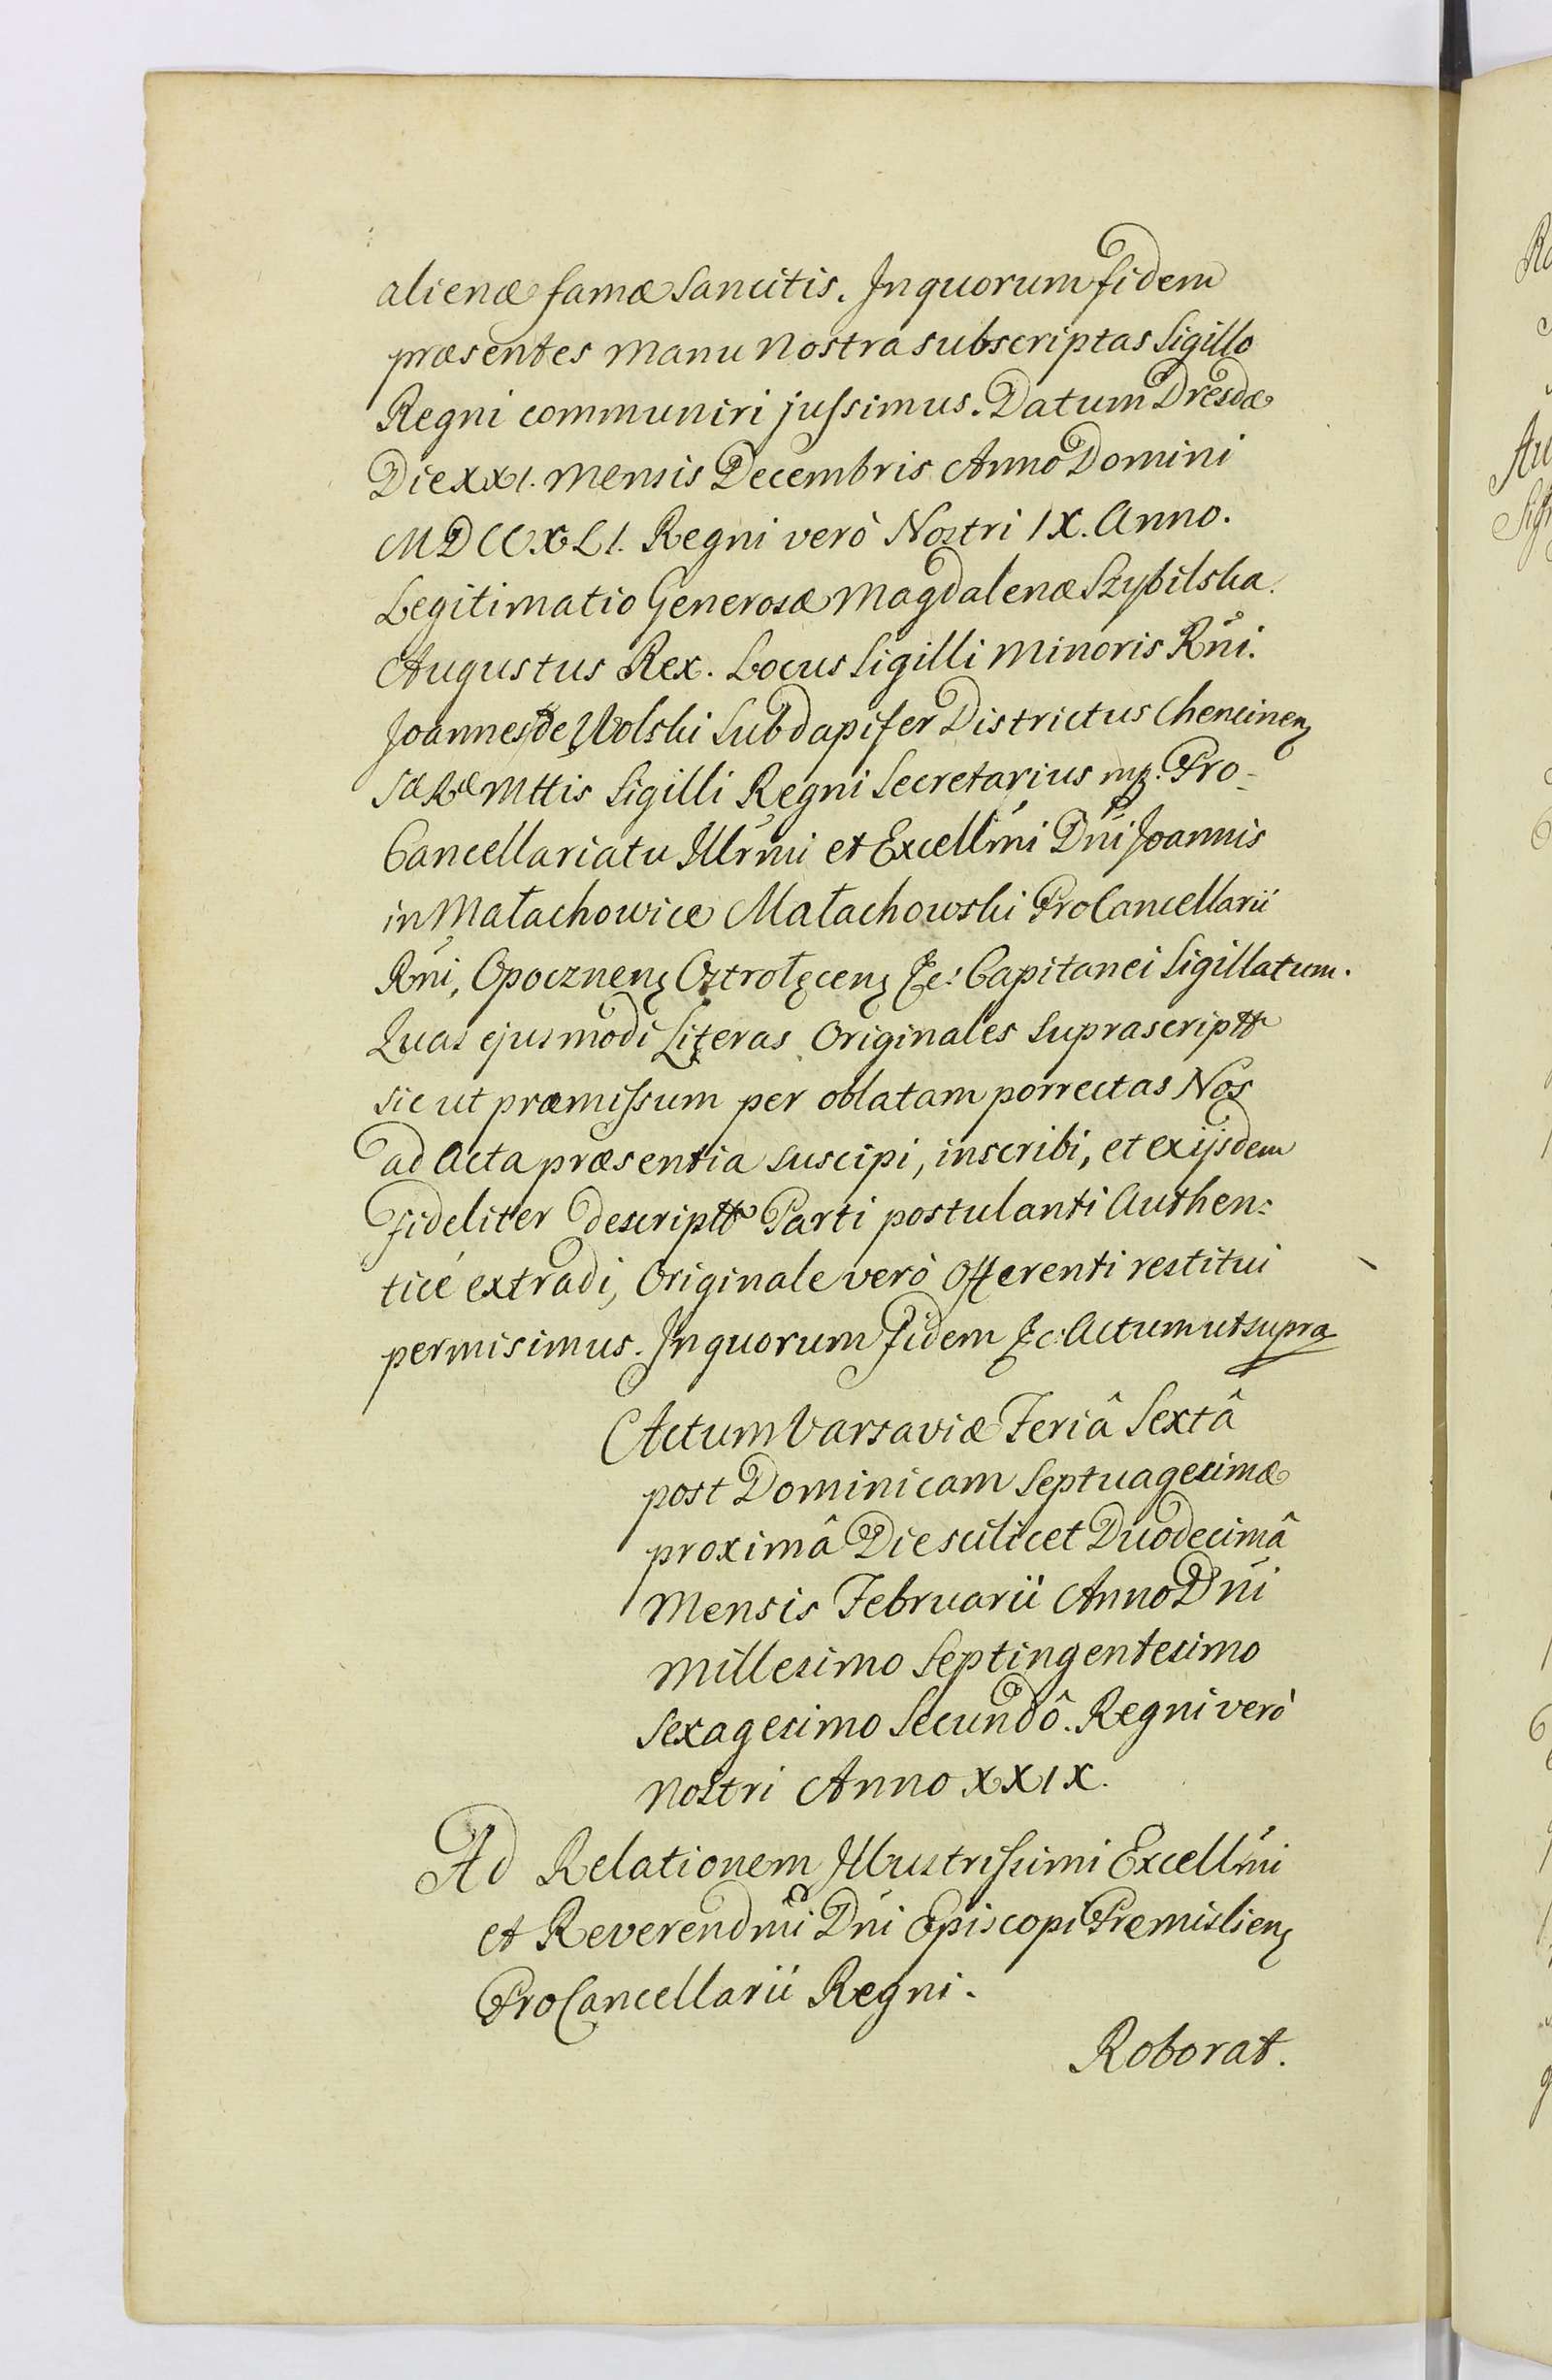 alienæ famæ Sancitis. In quorum fidem
præsentes manu Nostra subscriptas Sigillo
Regni communiri jussimus. Datum Dresdæ
Die XXI. Mensis Decembris Anno Domini
MDCCXLI. Regni verò Nostri IX. Anno.
Legitimatio Generosæ Magdalenæ Szybilska.
Augustus Rex. Locus Sigilli Minoris Rñi.
Joannes de Wolski Subdapifer Districtus Chencinen
Sæ Ræ Mttis Sigilli Regni Secretarius mp. Pro-
Cancellariatu Illrmi et Excellmi Dñi Joannis
in Małachowice Małachowski ProCancellarii
Rñi, Opocznen Ostrołęcen &c: Capitanei Sigillatum.
Quas ejusmodi Literas Originales suprascriptt
sic ut præmissum per oblatam porrectas Nos
ad Acta præsentia suscipi, inscribi, et ex ijsdem
fideliter descriptt Parti postulanti Authen:
ticé extradi, Originale verò Offerenti restitui
permisimus. In quorum fidem &c: Actum ut supra
Actum Varsaviæ Feriâ Sextâ
post Dominicam Septuagesimæ
proximâ Die scilicet Duodecimâ
Mensis Februarii Anno Dñi
Millesimo Septingentesimo
Sexagesimo Secundô. Regni verò
Nostri Anno XXIX.
Ad Relationem Illustrissimi Excellmi
et Reverendmi Dñi Episcopi Premislien
ProCancellarii Regni.
Roborat.